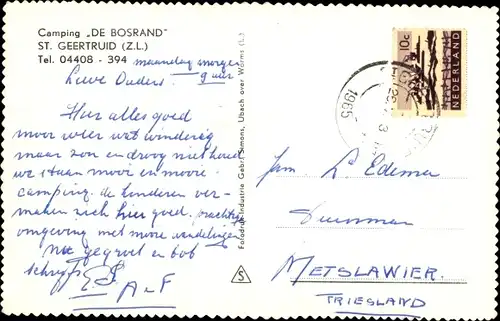 Camping „DE BOSRAND"
ST. GEERTRUID (Z.L.)
Tel. 04408 - 394
maandag morgen
9 uur
Lieve Ouders.
Hier alles goed
mooi weer wat winderig
maar zon en droog niet koud
we staan mooi en mooie
camping. de kinderen ver-
maken zich hier goed. prachtige
omgeving met mooie wandelingen
gegroet en
A en F
Fotodruk-Industrie Gebr. Simons, Ubach over Worms (L.)
S
10c
NEDERLAND
1965
Fam. L. Edema
METSLAWIER.
FRIESLAND